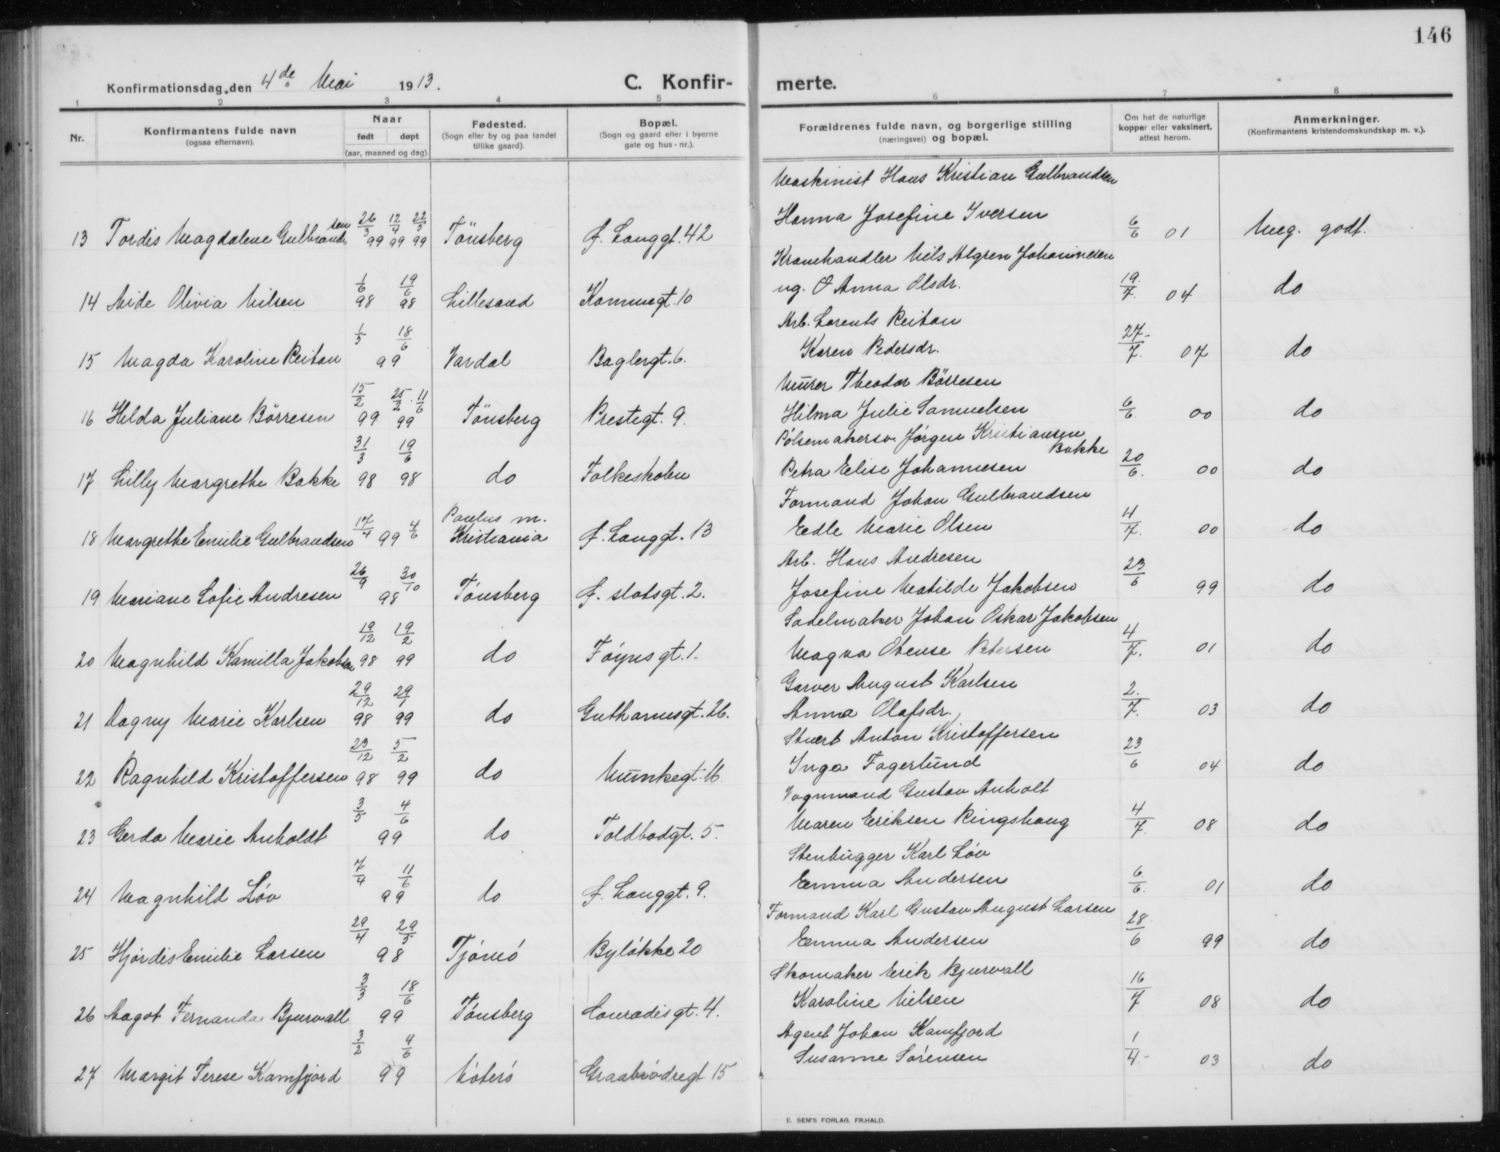 146
Konfirmationsdag, den 4de Mai 1913.
C. Konfirmerte.
1 2 3 4 5 6 7 8
Nr.
Konfirmantens fulde navn
(ogsaa efternavn).
Naar
født døpt
(aar, maaned og dag).
Fødested.
(Sogn eller by og paa landet
tillike gaard).
Bopæl.
(Sogn og gaard eller i byerne
gate og hus-nr.).
Forældrenes fulde navn, og borgerlige stilling
(næringsvei) og bopæl.
Om hat de naturlige
kopper eller vaksinert,
attest herom.
Anmerkninger.
(Konfirmantens kristendomskundskap m. v.).
Maskinist Hans Kristian Gulbrandsen
13 Tordis Magdalene Gulbrandsen 26/3 99 12/4 99 22/5 99 Tönsberg f. Langgt. 42 Hanna Josefine Iversen 6/6 01 Meg. godt.
Kramhandler Nils Algren Johannesen
14 Aide Olivia Nilsen 1/6 98 19/6 98 Lillesand Kammegt. 10 ug. O Anna Olsdr. 19/7. 04 do
Arb. Lorents Reitan
15 Magda Karoline Reitan 1/5 18/6 99 Vardal Baglergt. 6. Karen Pedersdr. 27/7. 07 do
Murer Theodor Börresen
16 Helda Juliane Börresen 15/2 99 25/2 11/6 99 Tönsberg Prestegt. 9. Hilma Julie Samuelsen 6/6 00 do
Pølsemakersv. Jørgen Kristiansen Bakke
17 Lilly Margrethe Bakke 31/3 98 19/6 98 do Folkeskolen Petra Elise Johannesen 20/6. 00 do
Formand Johan Gulbrandsen
18 Margrethe Emilie Gulbrandsen 17/4 99 4/6 Paulus m. Kristiania f. Langgt. 13 Edle Marie Olsen 4/7. 00 do
Arb. Hans Andresen
19 Mariane Sofie Andresen 26/9 30/10 98 Tønsberg f. slotsgt. 2. Josefine Matilde Jakobsen 23/6 99 do
Sadelmaker Johan Oskar Jakobsen
20 Magnhild Kamilla Jakobsen 19/12 98 19/2 99 do Føynsgt. 1. Magna Otense Petersen 4/7. 01 do
Garver August Karlsen
21 Dagny Marie Karlsen 29/12 98 29/1 99 do Guthormsgt. 26. Anna Olafsdr. 2./7. 03 do
Stuert Anton Kristoffersen
22 Ragnhild Kristoffersen 23/12 98 5/2 99 do Munkegt. 16. Inga Fagerlund 23/6 04 do
Vognmand Gustav Anholt
23 Gerda Marie Anholdt 3/5 4/6 99 do Toldbodgt. 5. Maren Eriksen Ringshaug 4/7. 08 do
Stenhugger Karl Løv
24 Magnhild Løv 7/4 11/6 99 do f. Langgt. 9. Emma Andersen 6/6. 01 do
Formand Karl Gustav August Larsen
25 Hjørdis Emilie Larsen 29/4 29/5 98 Tjømø Byløkke 20 Emma Andersen 28/6 99 do
Skomaker Erik Bjurvall
26 Aagot Fernanda Bjurvall 3/3 18/6 99 Tønsberg Conradisgt. 4. Karoline Nilsen 16/7 08 do
Agent Johan Kamfjord
27 Margit Terese Kamfjord 3/2 4/6 99 Nøterø Graabrødregt 15 Susanne Sørensen 1/4- 03 do
E. SEM'S FORLAG, FR.HALD.